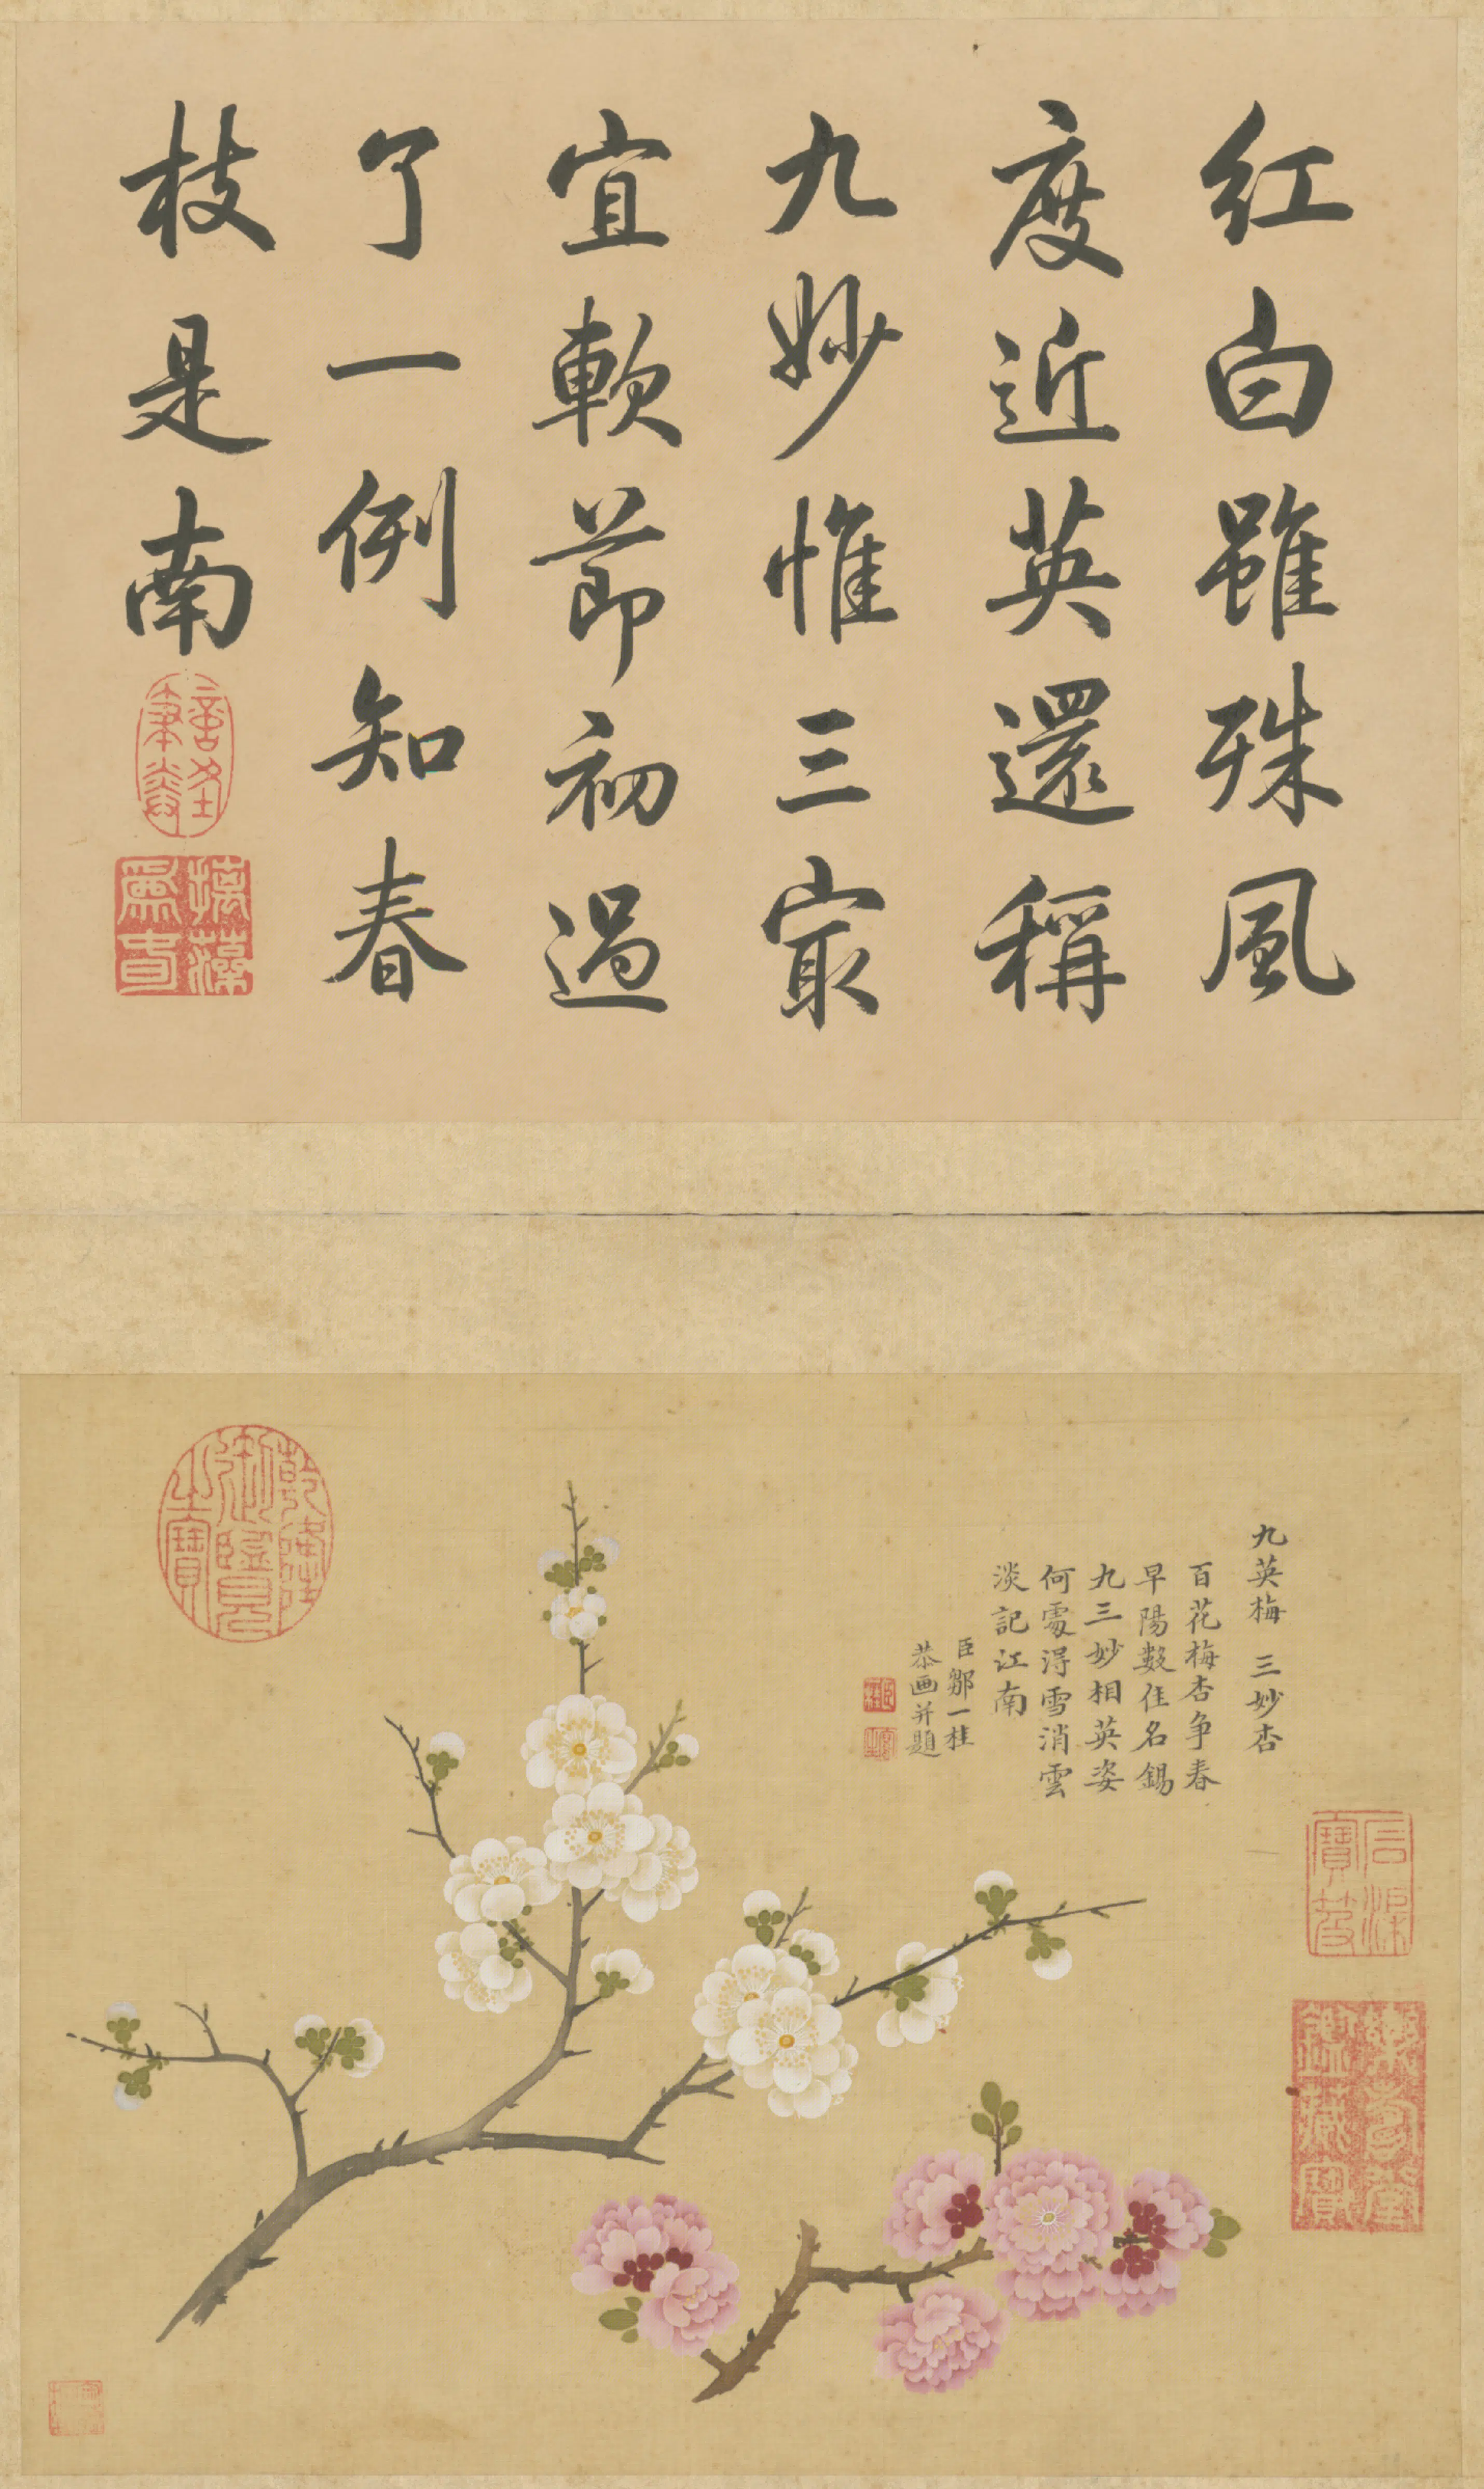 红白雖殊風
度近英還稱
九妙惟三冣
宜軟莭初過
了一例知春
枝是南
乾隆御覽之寶
九英梅 三妙杏
百花梅杏争春
早陽數佳名錫
九三妙相英姿
何處得雪消雲
淡記江南
臣鄒一桂
恭画并題